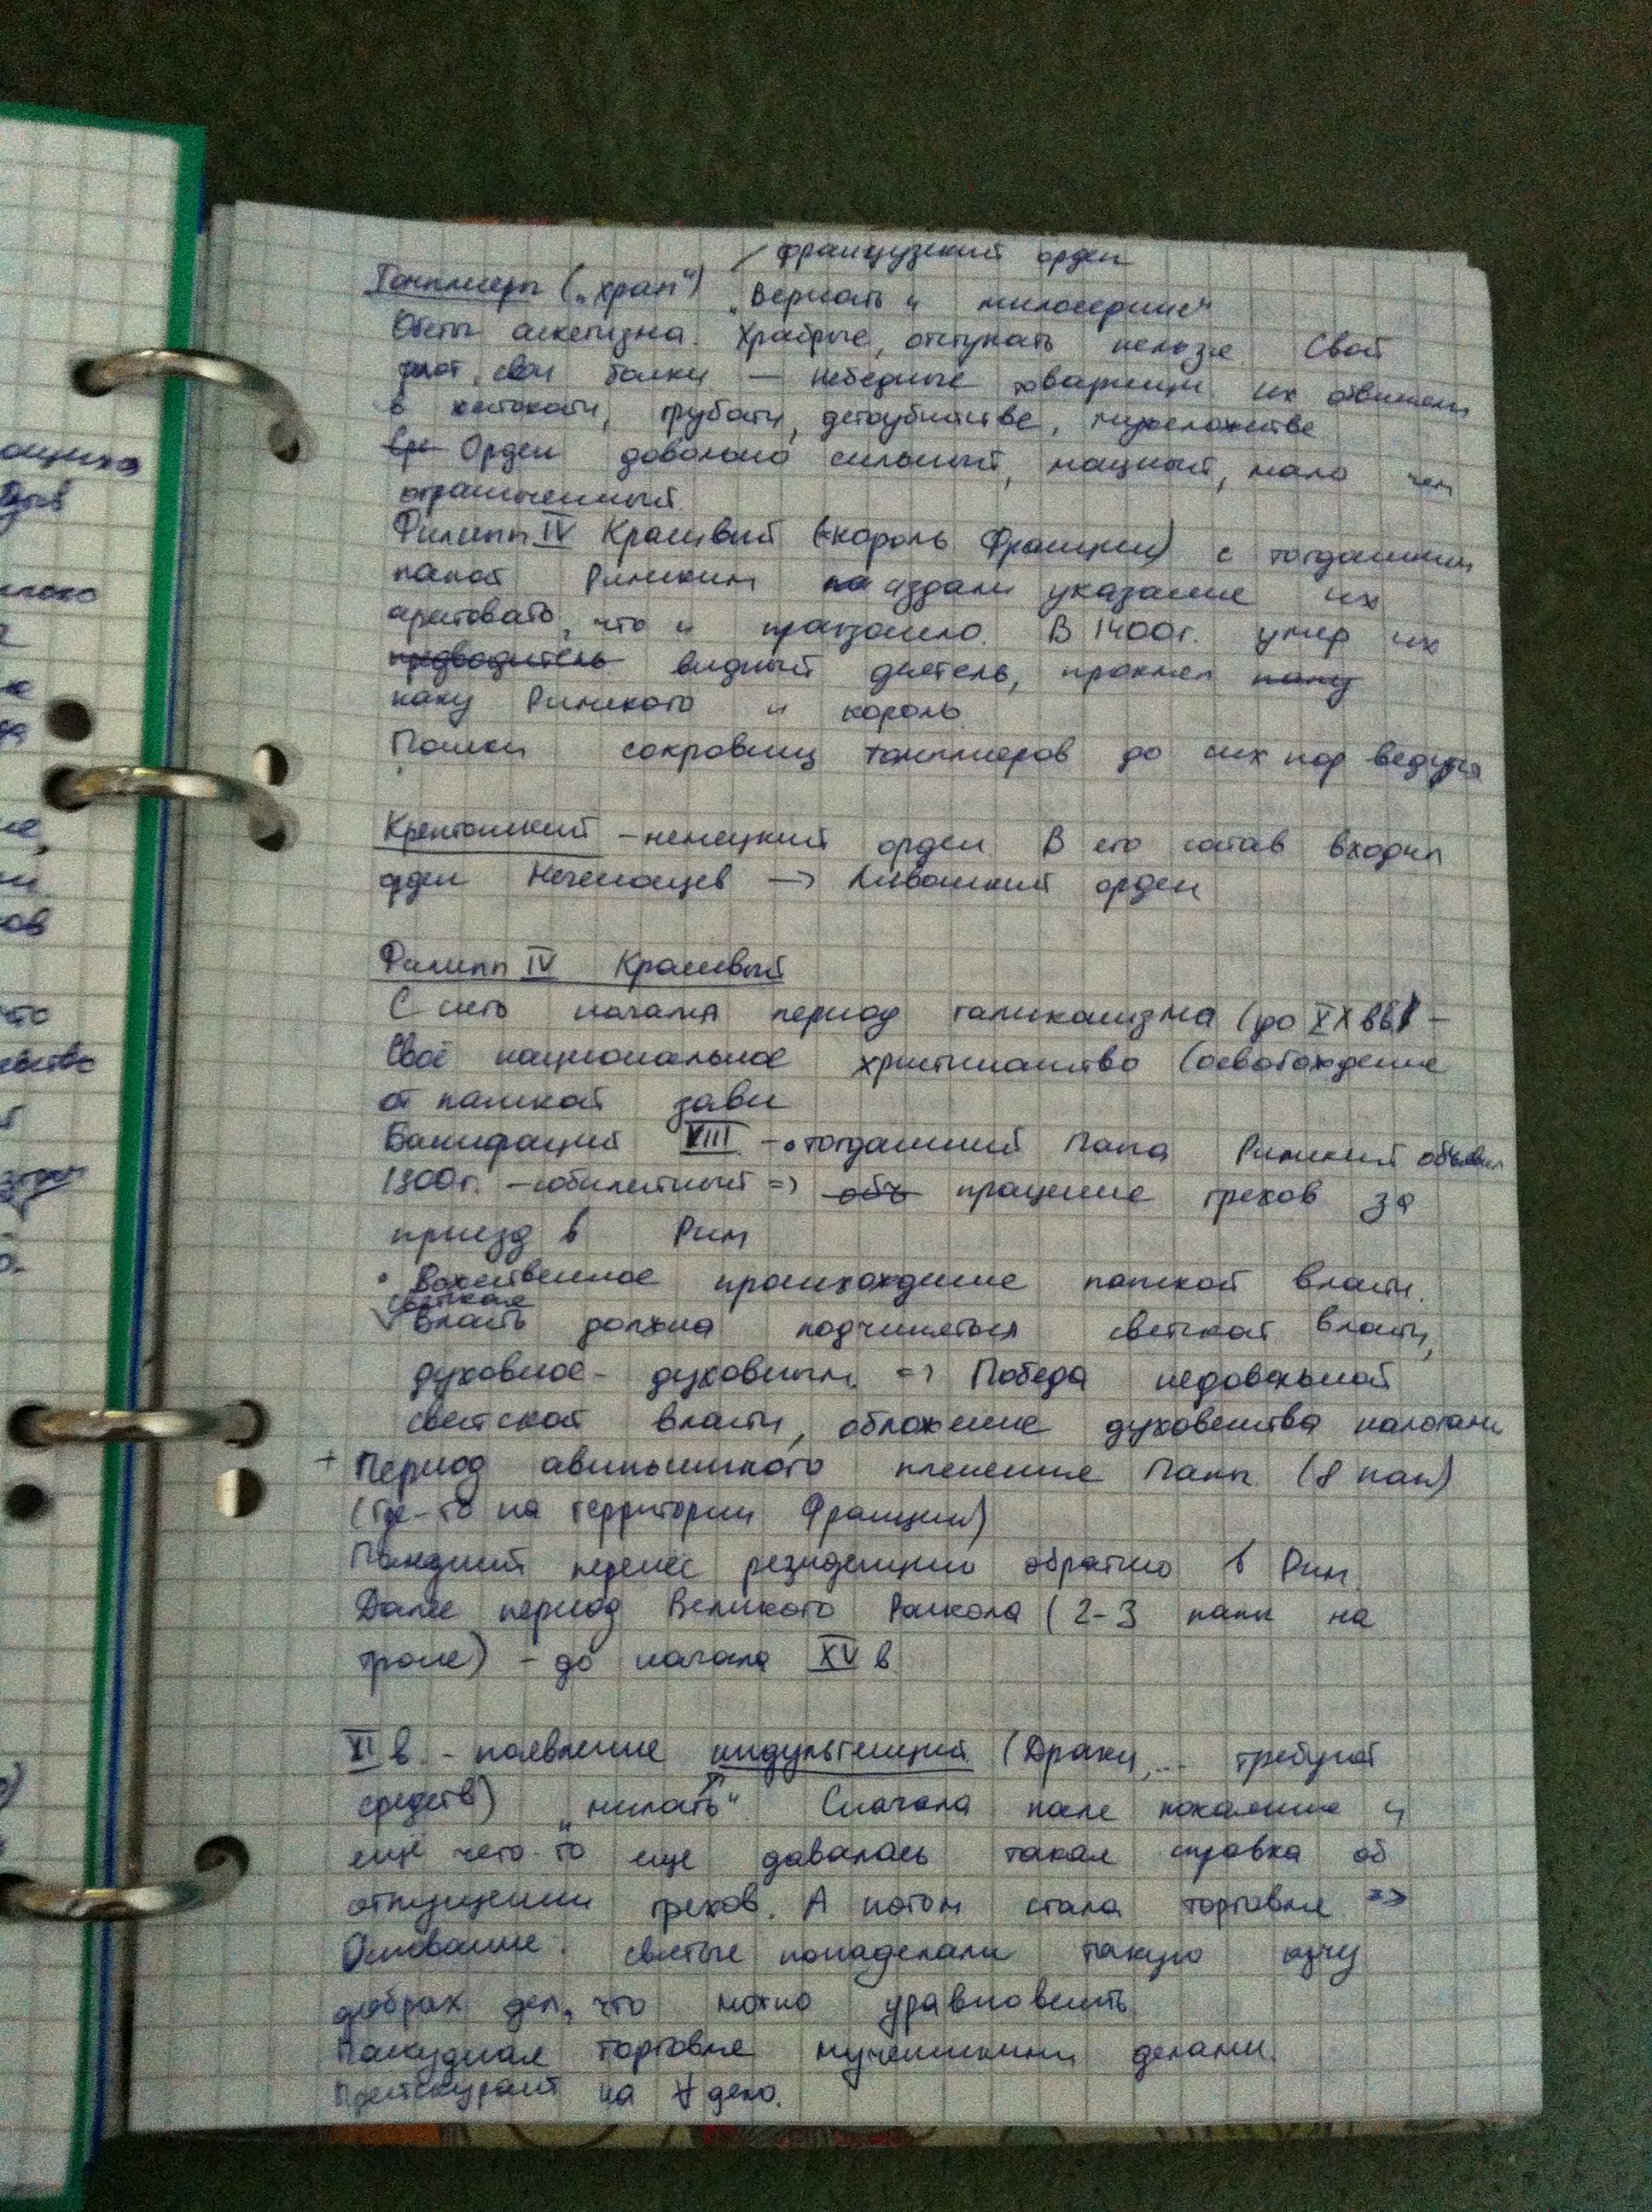 / французский орден
Тамплиеры („храм“) „Верность и милосердие“
Обеты аскетизма. Храбрые, отступать нельзя. Свой
флот, свои банки — небедные товарищи их обвиняли
в жестокости, грубости, детоубийстве, мужеложстве
Орден довольно сильный, мощный, мало чем
ограниченный.
Филипп IV Красивый (король Франции) с тогдашним
папой Римским издали указание их
арестовать, что и произошло. В 1400г. умер их
предводитель видный деятель, проклял папу
папу Римского и король
Поиски сокровищ тамплиеров до сих пор ведутся
– немецкий орден В его состав входил
орден Меченосцев → Ливонский орден
Филипп IV Красивый
С него начался период галиканизма (до XX вв) –
Своё национальное христианство (освобождение
от папской зави
Бонифаций VIII – тогдашний Папа Римский объявил
1300г. – юбилейный => объ прощение грехов за
приезд в Рим
• Божественное происхождение папской власти.
светская
V власть должна подчиняться светской власти,
духовное – духовным => Победа недовольной
светской власти, обложение духовенства налогами
+ Период авиньонского пленение Папы (8 пап)
(где-то на территории Франции)
Последний перенёс резиденцию обратно в Рим.
Далее период Великого Раскола (2-3 папы на
троне) – до начала XV в
XI в. – появление индульгенций (Драки,... требуют
средств) „милость“. Сначала после покаяние и
ещё чего-то еще давалась такая справка об
отпущении грехов. А потом стала торговля =>
Основание: святые понаделали такую кучу
добрых дел, что можно уравновесить
торговля мученскими делами.
Прейскурант на ∀ дело.